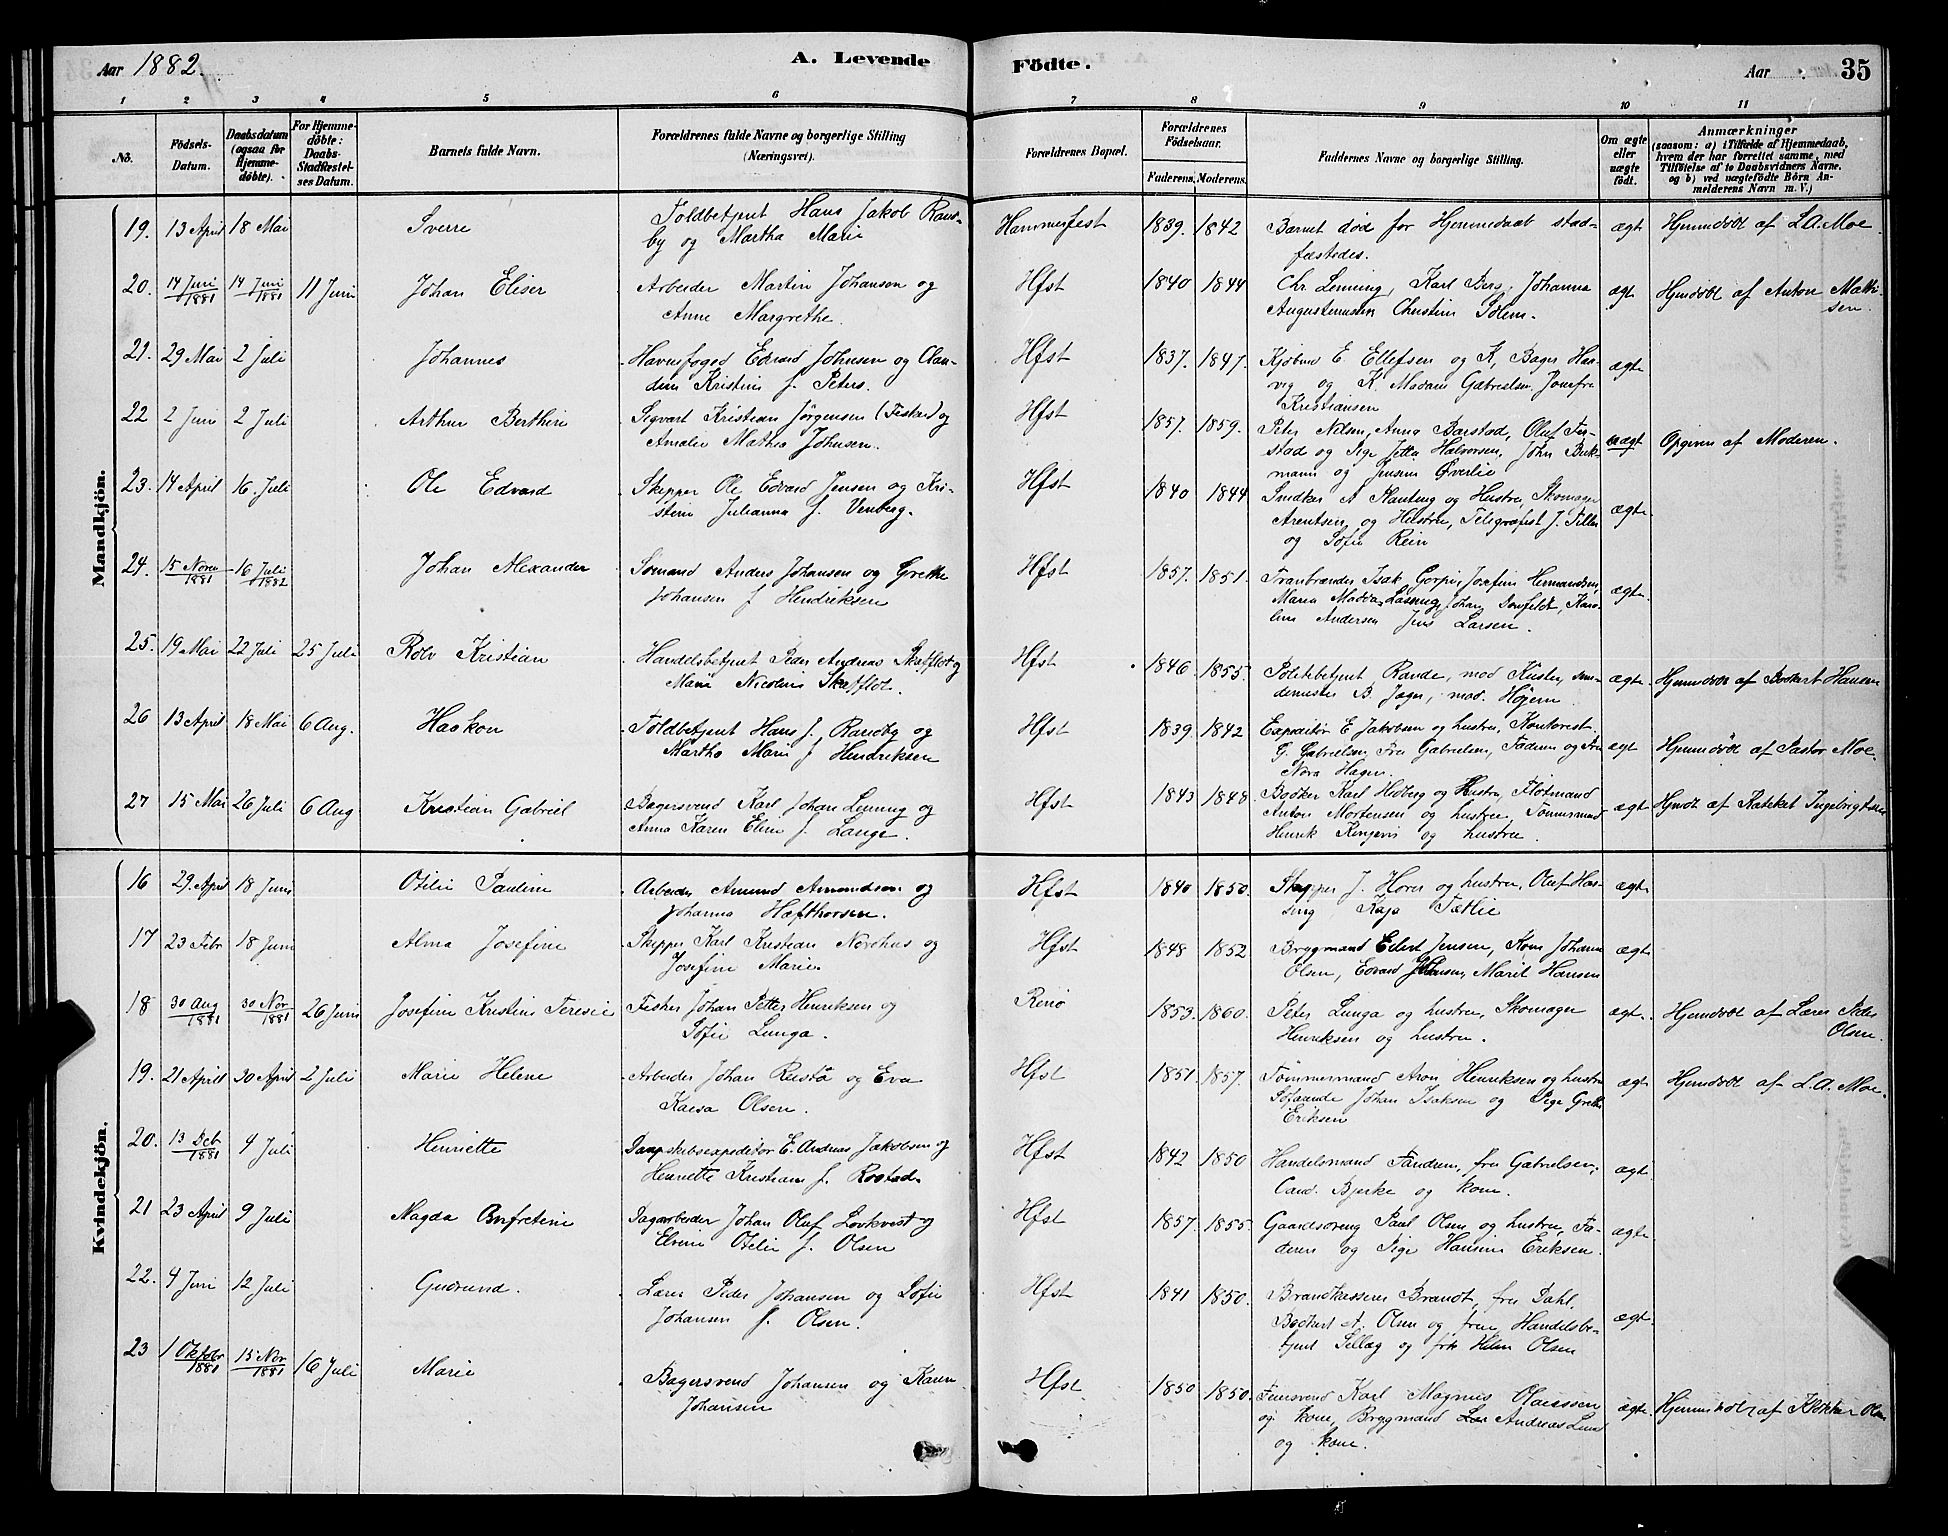 Aar 1882.
A. Levende
Födte.
Aar
35
1 2 3 4 5 6 7 8 9 10 11
No.
Födsels-
Datum.
Daabsdatum
(ogsaa for
Hjemme-
döbte).
For Hjemme-
döbte:
Daabs-
Stadfæstel-
ses Datum.
Barnets fulde Navn.
Forældrenes fulde Navne og borgerlige Stilling
(Næringsvei).
Forældrenes Bopæl.
Forældrenes
Födselsaar.
Faderens.
Moderens.
Faddernes Navne og borgerlige Stilling.
Om ægte
eller
uægte
födt.
Anmærkninger
(saasom: a) i Tilfælde af Hjemmedaab,
hvem der har forrettet samme, med
Tilföielse af to Daabsvidners Navne,
og b) ved uægtefödte Börn An-
melderens Navn m. V.)
Mandkjön.
19. 13 April 18 Mai Sverre
Toldbetjent Hans Jakob Rans-
by og Martha Marie
Hammerfest 1839. 1842
Barnet död for Hjemmedaab stad-
fæstedes.
ægt Hjemmdöbt af L.A. Moe
20. 14 Juni 1881 14 Juni 1881 11 Juni Johan Eliser
Arbeider Martin Johansen og
Anne Margrethe.
Hfst 1840 1844
Chr Lenning, Karl Berg, Johanna
Augustinussen Christine Solem.
ægt Hjmdöbt af Anton Mathi-
sen.
21. 29 Mai 2 Juli Johannes
Havnefoged Edvard Johnsen og Olau-
dine Kristine f. Peters.
Hfst 1837. 1847.
Kjöbmd E. Ellefsen og K, Bager Har-
vig og K. Madam Gabrielsen, Jomfru
Kristiansen
ægt
22 2 Juni 2 Juli Arthur Berthin
Sigvart Kristian Jörgensen (Fisker) og
Amalie Mathea Johnsen.
Hfst 1857. 1859.
Peter Nilsen, Anna Barstad, Oluf Fer-
stad og Pige Jetta Halvorsen, John Bek-
mann og Jensine Överlie
uægt Opgiven af Moderen.
23. 14 April 16. Juli Ole Edvard
Skipper Ole Edvard Jensen og Kri-
stine Julianna f. Venberg.
Hfst 1840 1844
Snedker A Hanting og Hustru, Skomager
Arentsen og Hustru, Telegrafist J. Tiller
og Sofie Rein
ægt.
24. 15 Novb 1881 16 Juli 1882 Johan Alexander
Sömand Anders Johansen og Grethe
Johansen f Hendriksen
Hfst 1857. 1851.
Tranbrænder Isak Gorpi, Josefine Hermandsen,
Maria Madda Lasseng, Johan Domfeldt, Karo-
line Andersen Jens Larsen.
ægt.
25. 19 Mai 22 Juli 25 Juli Rolv Kristian
Handelsbetjent Peder Andreas Skatflot og
Marie Nicoline Skatflot.
Hfst 1846. 1855.
Politibetjent Rande, mad Küster, sme-
demester B. Jager, mad. Höjem
ægt. Hjemmdöbt af Bockert Hansen
26 13 April 18 Mai 6 Aug. Haakon
Toldbetjent Hans J. Randby og
Martha Marie f Hendriksen
Hfst 1839 1842
Expeditör E Jakobsen og hustru, Kontorist
G. Gabrielsen, Fru Gabrielsen, Faderen og Frk
Nora Hagen
ægt Hjemmdöbt af Pastor Moe
27 15 Mai 26 Juli 6 Aug Kristian Gabriel
Bagersvend Karl Johan Lenning og
Anna Karen Eline f. Lange.
Hfst 1843 1848.
Bödker Karl Hedberg og Hustru, Flötmand
Anton Mortensen og hustru, Tömmermand
Henrik Kinjervi og hustru.
ægt. Hjmdt af Kateket Ingebrigtsen
Kvindekjön.
16 29. April 18 Juni Otilie Pauline
Arbeider Amund Amundsen og
Johanna Hafthorsen.
Hfst 1840 1850.
Skipper J. Hover og hustru, Oluf Has-
sing, Kaja Tætlie
ægt.
17 23 Febr 18 Juni Alma Josefine
Skipper Karl Kristian Nordhus og
Josefine Marie.
Hfst 1848 1852
Bryggmand Edert Jensen, Kone Johanne
Olsen, Edvard Johnsen, Marit Hansen
ægt.
18 30 Aug 1881 30 Nov 1881 26 Juni Josefine Kristine Teresie
Fisker Johan Petter Henriksen og
Sofie Lunga.
Renö 1853. 1860.
Peter Lunga og hustru, Skomager
Henriksen og hustru.
ægt. Hjemdöbt af Lærer Peder
Olsen.
19. 21 April 30 April 2 Juli Marie Helene
Arbeider Johan Rustö og Eva
Kaisa Olsen.
Hfst 1851. 1857.
Tömmermand Aron Henriksen og hustru
Söfarende Johan Isaksen og Pige Grethe
Eriksen
ægt Hjemdöbt af L.A. Moe.
20. 13 Dcb 1881 4 Juli Henriette
Dampskibsexpeditör E. Andreas Jakobsen og
Henriette Kristiane f. Rostad.
Hfst 1842 1850
Handelsmand Fandrem, fru Gabrielsen,
Cand. Bjerke og kone.
ægt.
21 23 April 9 Juli Magda Onfretine
Dagarbeider Johan Oluf Lovkvist og
Elvine Otelie f. Olsen
Hfst 1857. 1855.
Gaardsdreng Paul Olsen og hustru, Fa-
deren og Pige Hansine Eriksen.
ægt.
22. 4 Juni 12 Juli Gudrund.
Lærer Peder Johansen og Sofie
Johansen f. Olsen.
Hfst 1841 1850.
Brandkasserer Brandt, fru Dahl,
Bockert A. Olsen og frue, Handelsbe-
tjent Sillæg og frk Hilm Olsen
ægt.
23 1 Oktobr 1881 15 Nov 1881 16 Juli Marie
Bagersvend Johansen og Karen
Johansen
Hfst 1850 1850.
Feiersvend Karl Magnus Olaissen
og kone, Bryggmand Andreas Lund
og kone.
ægt. Hjemmdöbt af Klokker Olsen